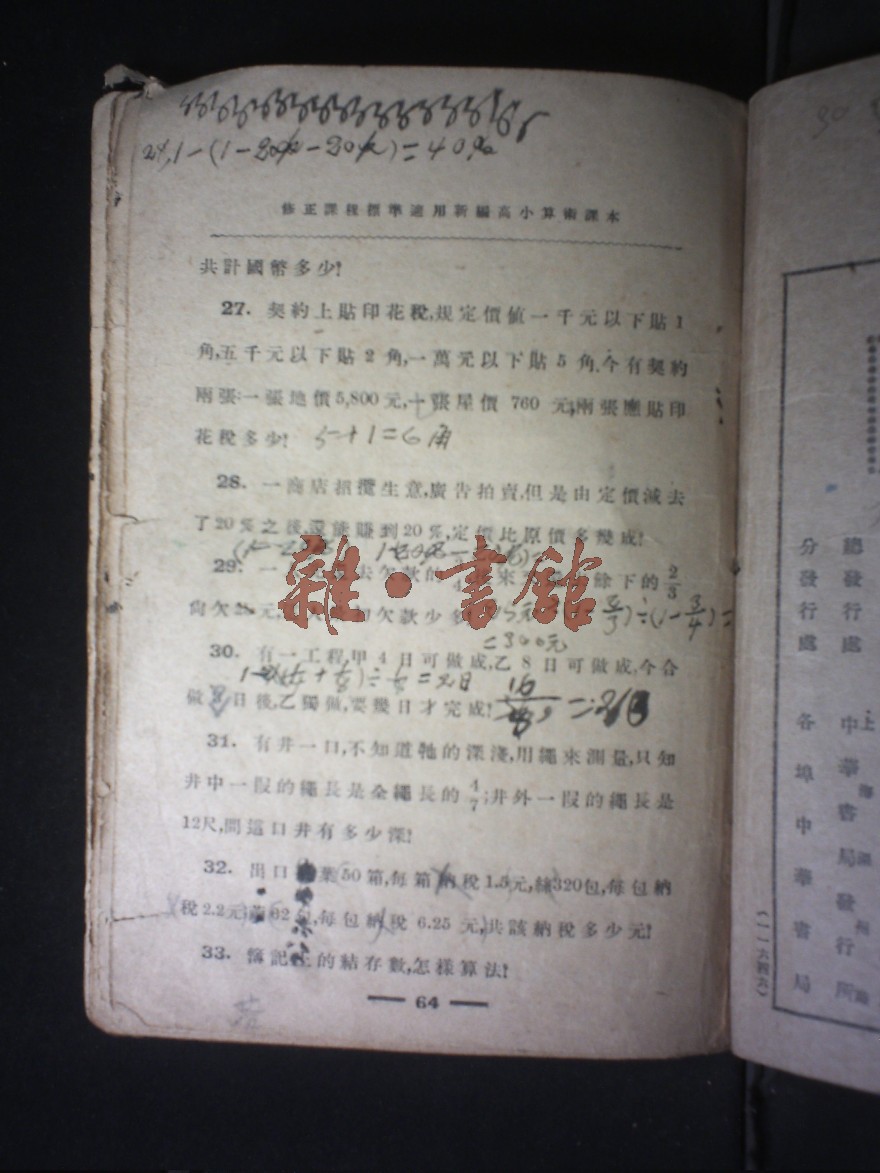 24,1-(1-20%-20%)=40%
修正課程標準適用新編高小算術課本
共計國幣多少?
27. 契約上貼印花稅,規定價值一千元以下貼1
角,五千元以下貼2角,一萬元以下貼5角.今有契約
兩張:一張地價5,800元,一張屋價760元,兩張應貼印
花稅多少? 5+1=6角
28. 一商店招攬生意,廣告拍賣,但是由定價減去
了20%之後,還能賺到20%,定價比原價多幾成?
29. 一 去欠款的 來 餘下的 2/3
尙欠25元, 欠款少
=300元
30. 有一工程,甲4日可做成,乙8日可做成,今合
做 日後,乙獨做,要幾日才完成?
31. 有井一口,不知道牠的深淺,用繩來測量,只知
井中一段的繩長是全繩長的 4/7;井外一段的繩長是
12尺,問這口井有多少深?
32. 出口 葉50箱,每箱納稅1.5元,絲320包,每包納
稅2.2元, 82包,每包納稅6.25元,共該納稅多少元?
33. 簿記上的結存數,怎樣算法?
64
雜·書館
總發行處 上海 中華書局發行所
分發行處 各埠中華書局
(一一六四六)